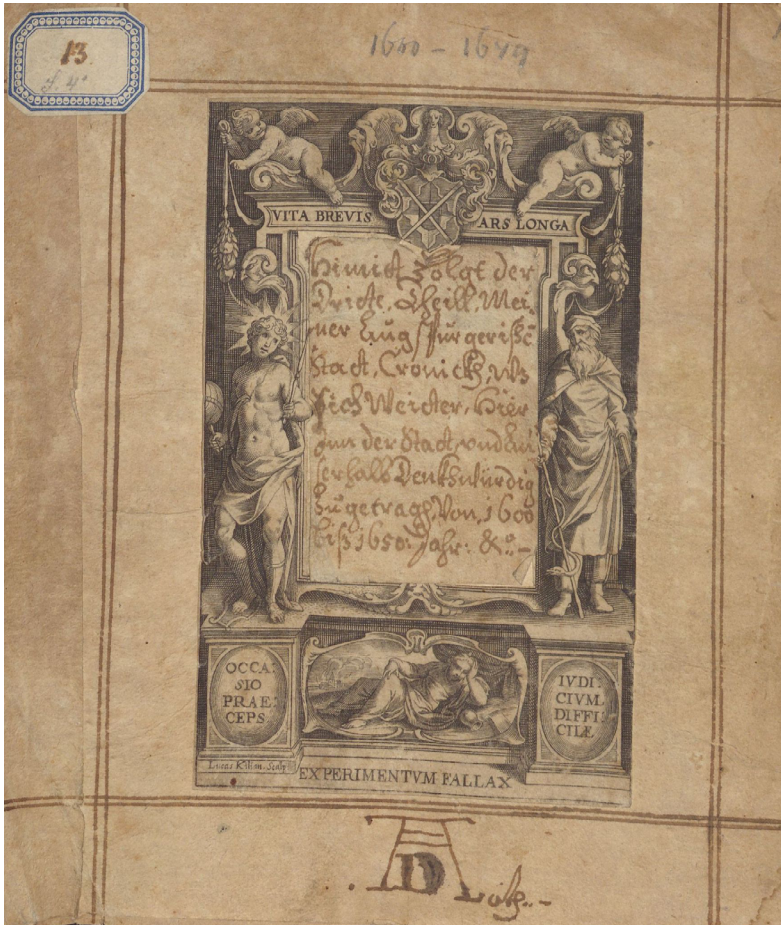 13
4°
1600 - 1649
VITA BREVIS ARS LONGA
Himit Folgt der
Dritte, Theill, Mei,
ner Augspurgerische
Statt, Cronickh, Wz
Sich Weitter, Hier
Inn der Statt, vnd
serhalb Denkhwürdig
Zu getragen, Von, 1600
biß 1650: Jahr: &c: -
OCCA:
SIO
PRAE:
CEPS
IVDI:
CIVM.
DIFFI:
CILE
Lucas Kilian Sculp
EXPERIMENTVM FALLAX
AD